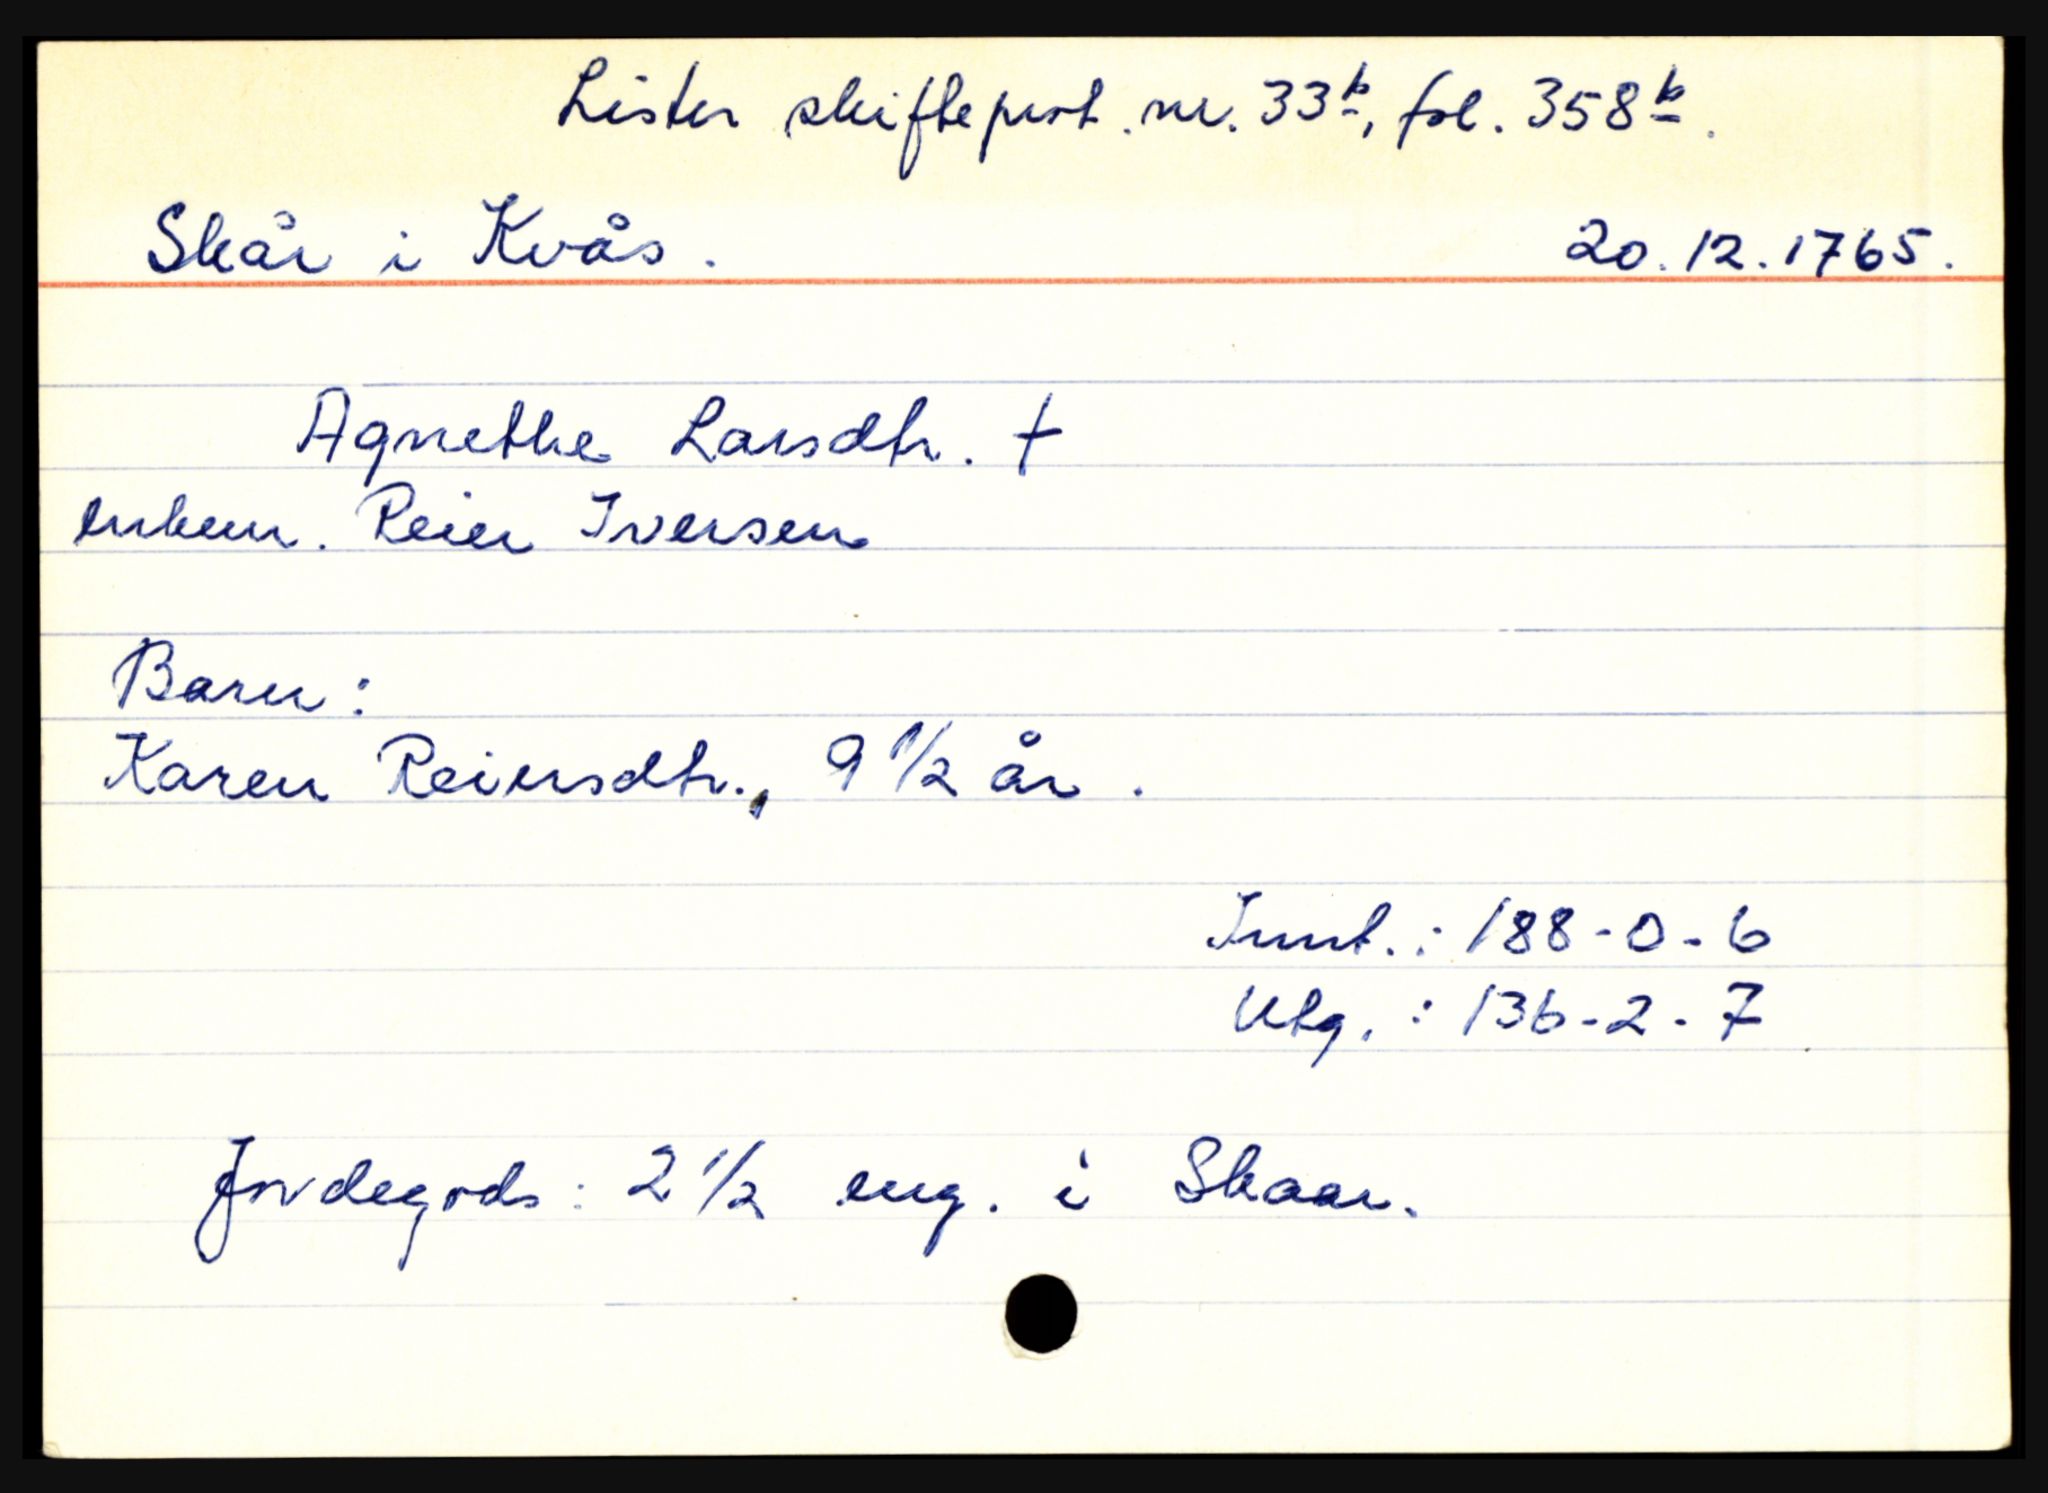 Lister skifteprot. nr. 33b, fol. 358b.
Skår i Kvås. 20.12.1765.
Agnethe Larsdtr. †
enkem. Reier Iversen
Barn:
Karen Reiersdtr., 9 1/2 år.
Innt.: 188-0-6
Utg.: 136-2-7
Jordegods: 2 1/2 eng. i Skaar.